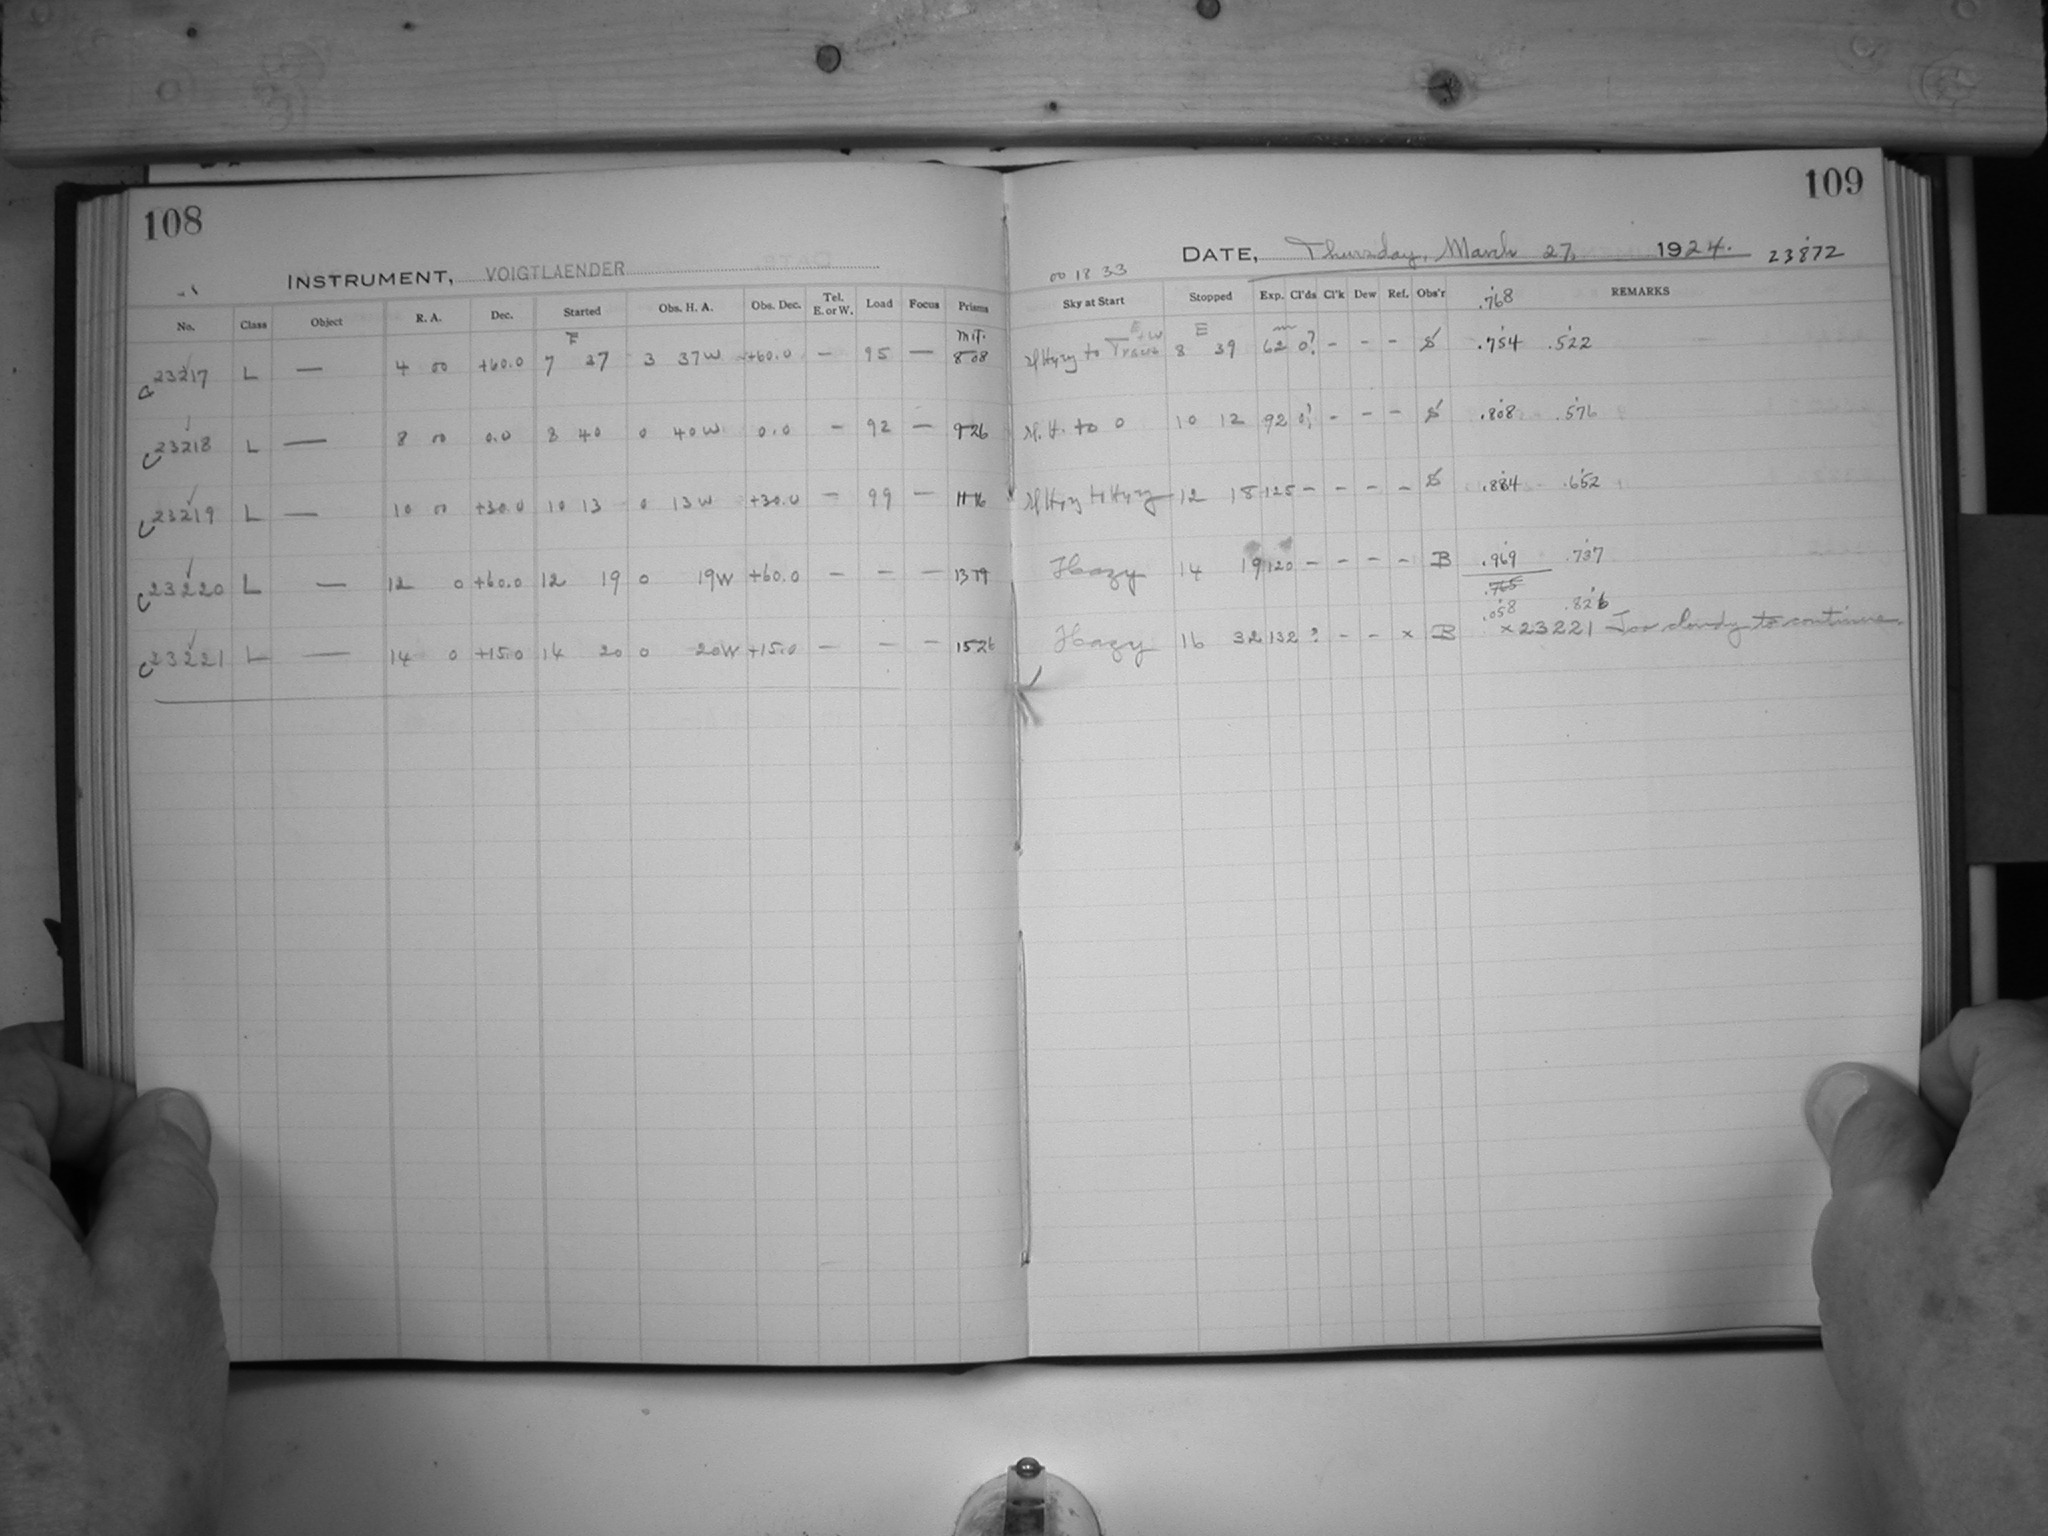 108
INSTRUMENT, VOIGTLAENDER
No. Class Object R. A. Dec. Started Obs. H. A. Obs. Dec. Tel. E. or W. Load Focus Prisms
E M.T.
C 23217 L — 4 00 +60.0 7 37 3 37W +60.0 — 95 — 8 08
C 23218 L — 8 00 0.0 8 40 0 40W 0.0 — 92 — 9 26
C 23219 L — 10 00 +30.0 10 13 0 13W +30.0 — 99 — 11 16
C 23220 L — 12 0 +60.0 12 19 0 19W +60.0 — — — 13 19
C 23221 L — 14 0 +15.0 14 20 0 20W +15.0 — — — 15 26
109
DATE, Thursday, March 27, 1924. 23872
00 18 33
Sky at Start Stopped Exp. Cl'ds Cl'k Dew Ref. Obs'r .768 REMARKS
E m
to 8 39 62 0? - - - S .754 .522
to 0 10 12 92 0? - - - S .808 .576
12 18 125 - - - - S .884 .652
Hazy 14 19 120 - - - - B .969 .737
.765
.058 .826
Hazy 16 32 132 ? - - x B x23221 Too cloudy to continue.